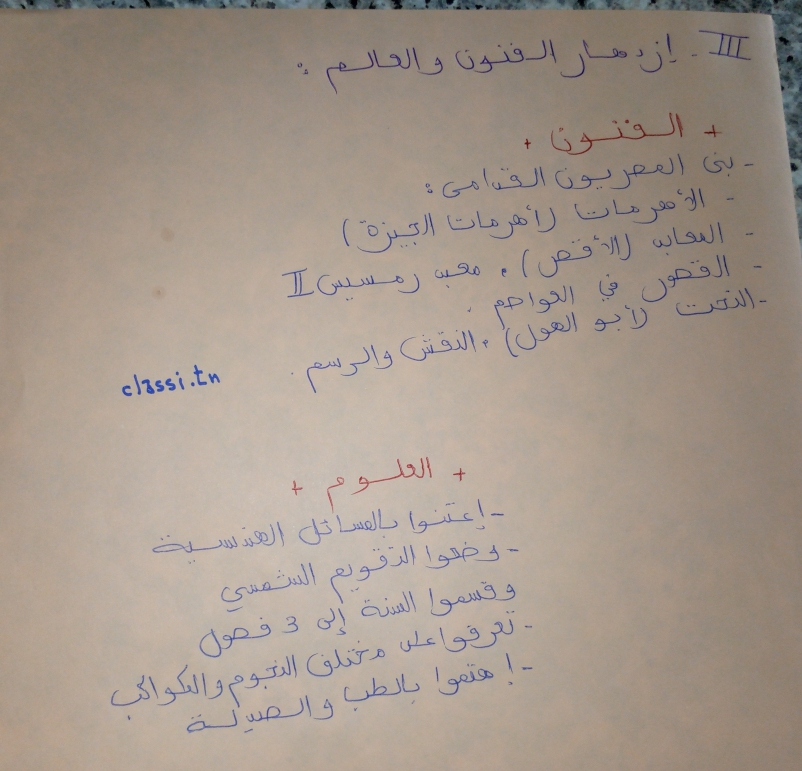 III. إزدهار الفنون والعالم :
+ الفنون +
- بنى المصريون القدامى :
- الأهرمات (أهرمات الجيزة)
- المعابد (الأقصر) . معبد رمسيس II
- القصور في العواصم .
- النحت (أبو الهول) . النقش والرسم .
classi.tn
+ العلوم +
- إعتنوا بالمسائل الهندسية
- وضعوا التقويم الشمسي
وقسموا السنة إلى 3 فصول
- تعرفوا على مختلف النجوم والكواكب
- إهتموا بالطب والصيدلة